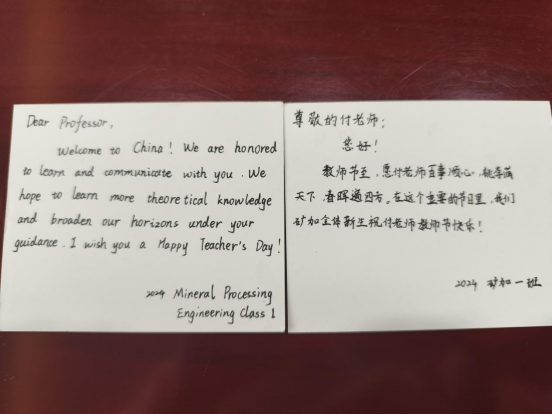 Dear Professor,
Welcome to China! We are honored
to learn and communicate with you. We
hope to learn more theoretical knowledge
and broaden our horizons under your
guidance. I wish you a Happy Teacher's Day!
2024 Mineral Processing
Engineering Class 1
尊敬的付老师:
您好!
教师节至,愿付老师百事顺心,桃李满
天下,春晖遍四方。在这个重要的节日里,我们
矿加全体新生祝付老师教师节快乐!
2024 矿加一班